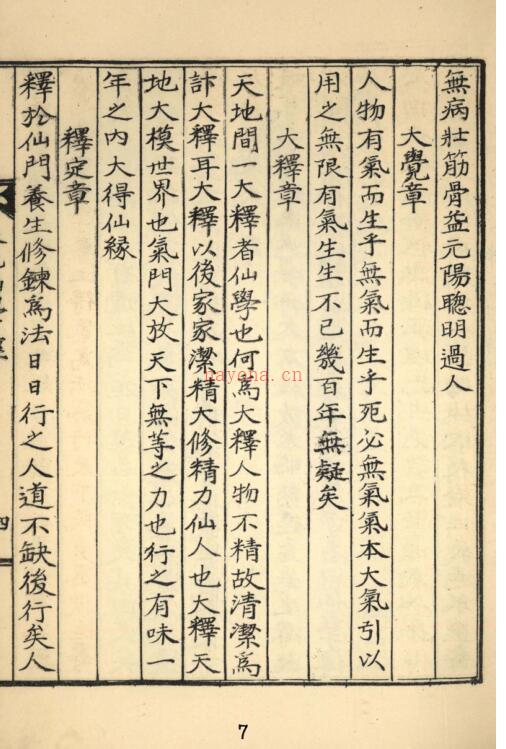 無病壯筋骨益元陽聰明過人
大覺章
人物有氣而生乎無氣而生乎死必無氣氣本大氣引以
用之無限有氣生生不已幾百年無疑矣
大釋章
天地間一大釋者仙學也何爲大釋人物不精故清潔爲
訃大釋耳大釋以後家家潔精大修精力仙人也大釋天
地大模世界也氣門大放天下無等之力也行之有味一
年之內大得仙緣
釋定章
釋於仙門養生修鍊爲法日日行之人道不缺後行矣人
四
nayona.cn
7